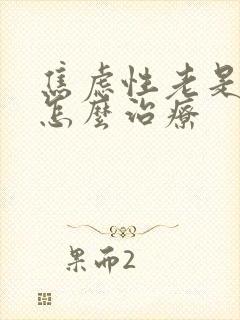 焦虑性老是
怎麼治疗
果而2